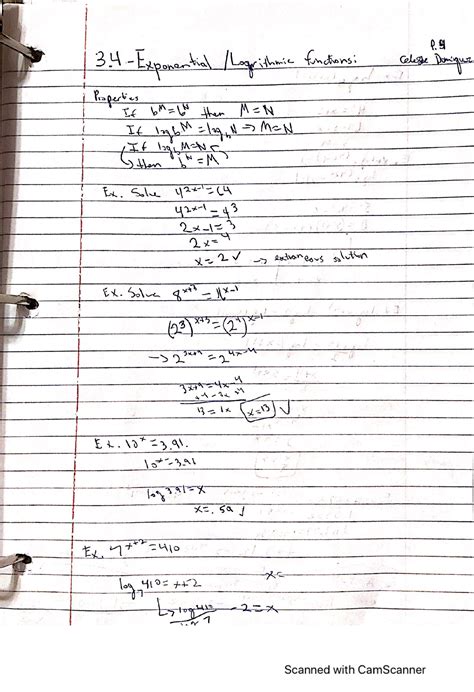 P. 91
3.4 - Exponential / Logrithmic functions:
Celeste Dominguez
Properties
If b^M = b^N then M = N
If log_b M = log_b N => M = N
If log_b M = N
then b^N = M
Ex. Solve 4^2x-1 = 64
4^2x-1 = 4^3
2x-1 = 3
2x = 4
x = 2 ✓ → extraneous solution
Ex. Solve 8^x+3 = 16^x-1
(2^3)^x+3 = (2^4)^x-1
→ 2^3x+9 = 2^4x-4
3x+9 = 4x-4
+4 -3x +4
13 = 1x (x=13) ✓
Ex. 10^x = 3.91.
10^x = 3.91
log 3.91 = x
x = .59 ✓
Ex. 7^x+2 = 410
log_7 410 = x+2
x =
↳ log 410 / log 7 - 2 = x
Scanned with CamScanner